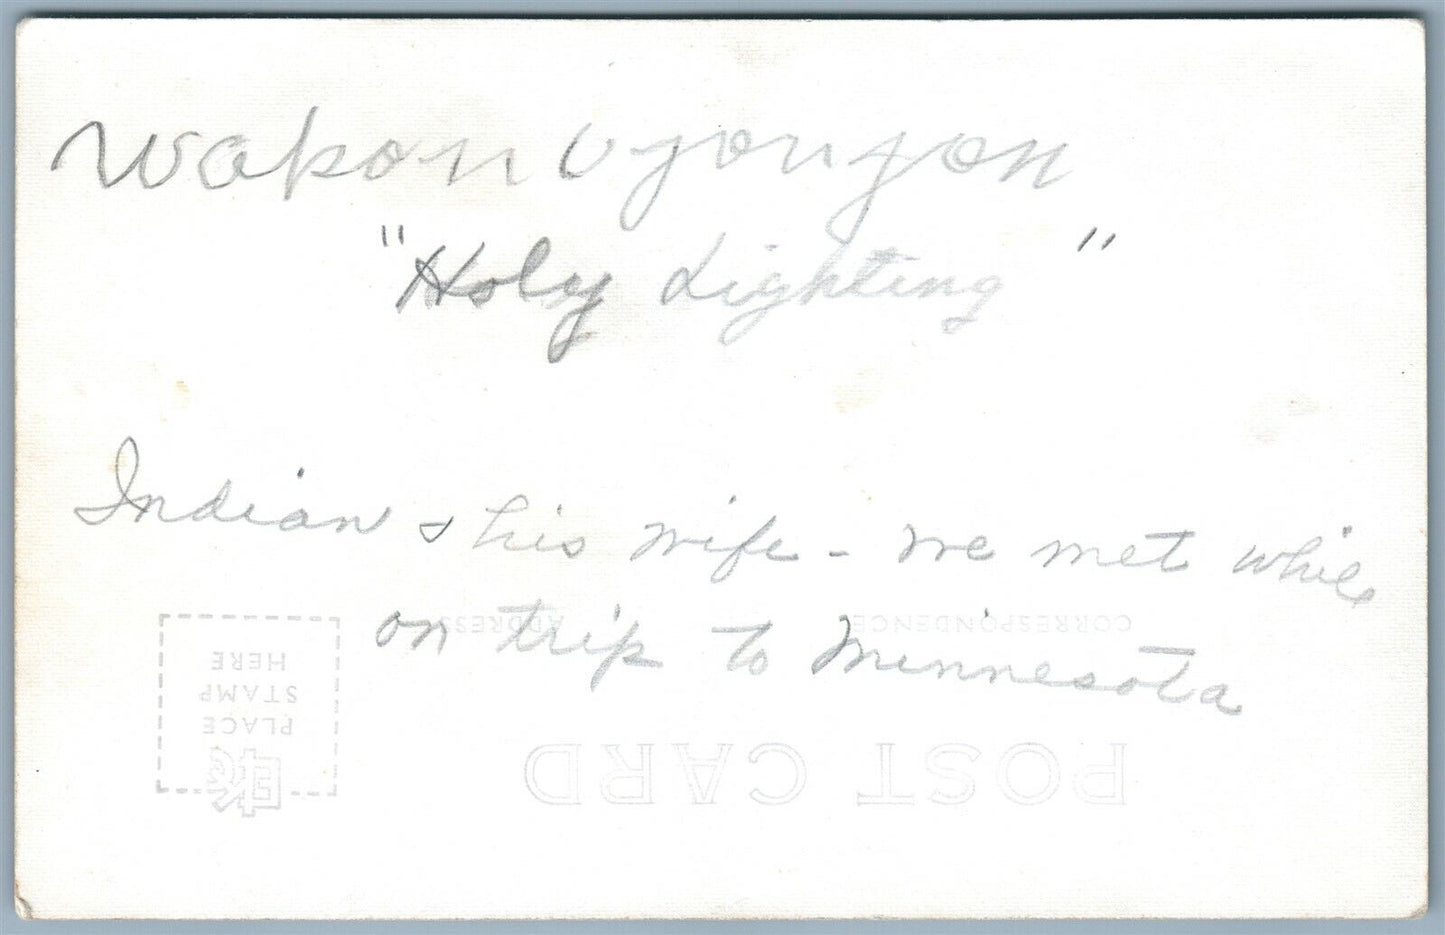 Wakon Vyonyon
"Holy Lighting"
Indian & his wife - we met while
on trip to Minnesota
ADDRESS
CORRESPONDENCE
PLACE
STAMP
HERE
EKC
POST CARD